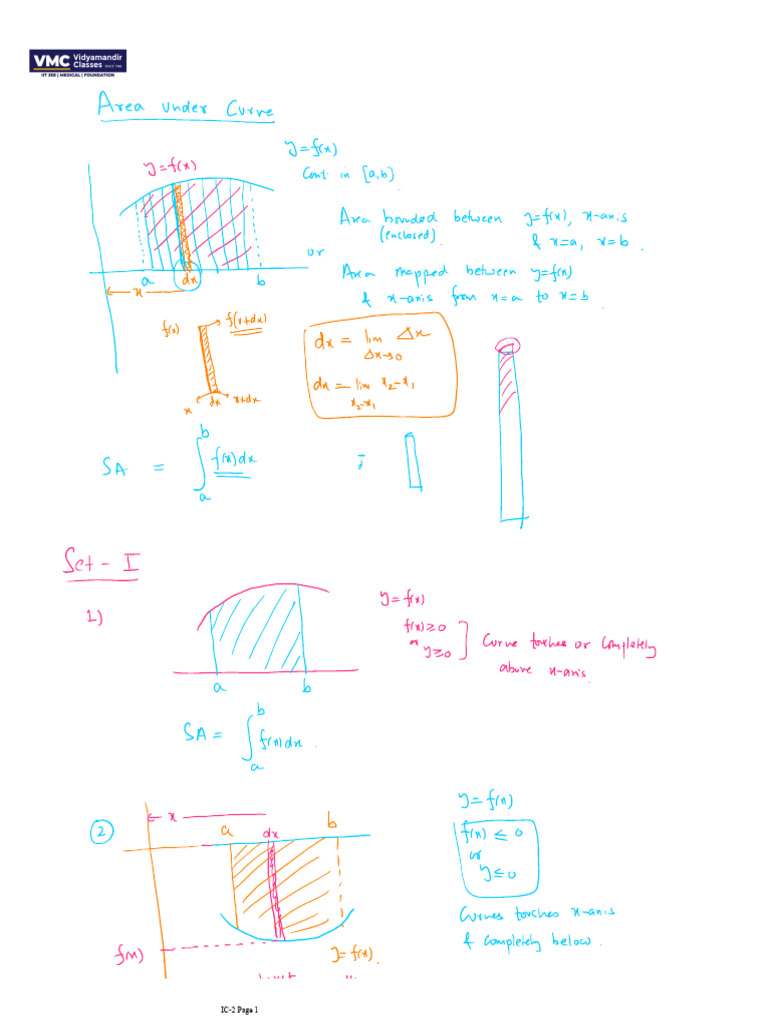 VMC Vidyamandir Classes SINCE 1986
IIT JEE | MEDICAL | FOUNDATION
Area under Curve
y=f(x)
Cont. in [a,b]
y=f(x)
Area bounded between y=f(x), x-axis
(enclosed). & x=a, x=b.
or
Area mapped between y=f(x)
& x-axis from x=a to x=b.
a dx b
x
f(x) f(x+dx)
x dx x+dx
dx = lim Δx
Δx→0
dx = lim x₂-x₁
x₂-x₁
SA = ∫ₐᵇ f(x)dx
Set - I
1)
y=f(x)
f(x)≥0
or
y≥0
Curve touches or Completely
above x-axis.
a b
SA = ∫ₐᵇ f(x)dx.
2
x
a dx b
f(x)
y=f(x).
y=f(x)
f(x) ≤ 0
or
y≤0
Curves touches x-axis
& Completely below.
IC-2 Page 1